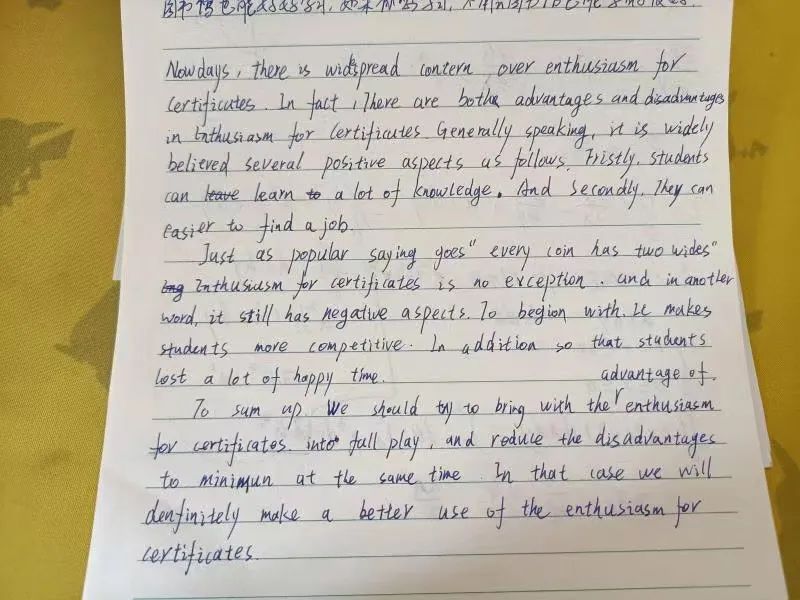 Nowdays, there is widespread contern over enthusiasm for
certificates. In fact, There are bothe advantages and disadvantages
in Enthusiasm for certificates Generally speaking, it is widely
believed several positive aspects as follows. Fristly. students
can leave learn to a lot of knowledge. And Secondly. They can
easier to find a job.
Just as popular saying goes" every coin has two wides"
Eng Enthusiusm for certificates is no exception. and in another
word, it still has negative aspects. To begion with. It makes
students more competitive. In addition so that students
lost a lot of happy time.
advantage of.
To sum up. We should try to bring with the enthusiasm
for certificates. into full play, and reduce the disadvantages
to minimun at the same time. In that case we will
denfinitely make a better use of the enthusiasm for
certificates.